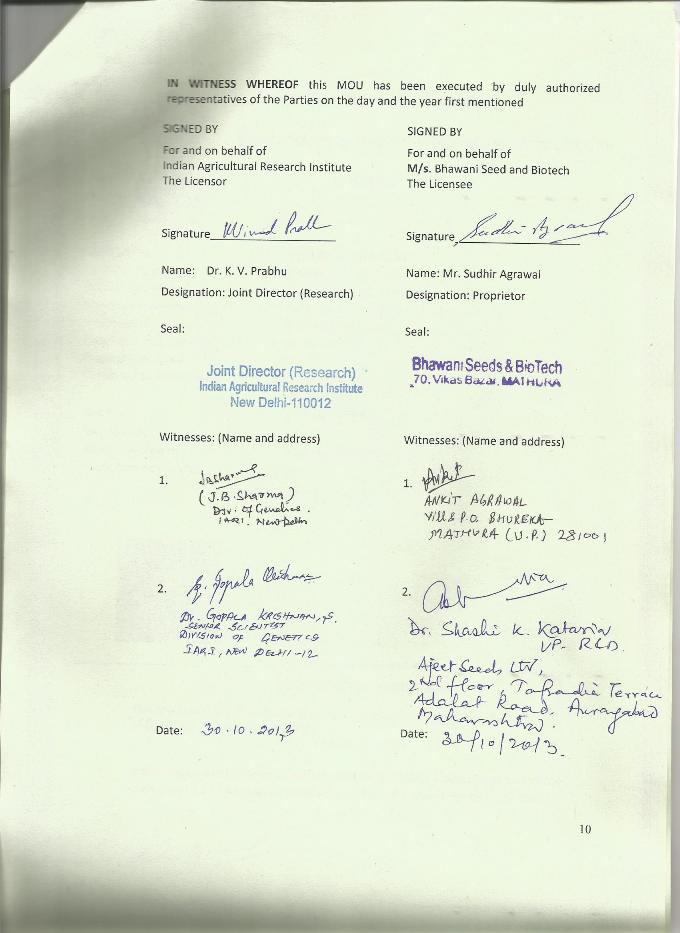 IN WITNESS WHEREOF this MOU has been executed by duly authorized
representatives of the Parties on the day and the year first mentioned
SIGNED BY
For and on behalf of
Indian Agricultural Research Institute
The Licensor
Signature
Name: Dr. K. V. Prabhu
Designation: Joint Director (Research)
Seal:
Joint Director (Research)
Indian Agricultural Research Institute
New Delhi-110012
Witnesses: (Name and address)
1.
(J.B. Sharma)
Div. of Genetics.
IARI. New Delhi
2.
Dr. GOPALA KRISHNAN, S.
SENIOR SCIENTIST
DIVISION OF GENETICS
IARI, NEW DELHI-12
Date: 30.10.2013
SIGNED BY
For and on behalf of
M/s. Bhawani Seed and Biotech
The Licensee
Signature
Name: Mr. Sudhir Agrawal
Designation: Proprietor
Seal:
Bhawani Seeds & BioTech
70, Vikas Bazar, MATHURA
Witnesses: (Name and address)
1. Ankit
ANKIT AGRAWAL
Vill & P.O. BHUREKA
MATHURA (U.P.) 281001
2.
Dr. Shashi K. Kataria
VP- R&D.
Ajeet Seeds Ltd,
2nd floor, Tapadia Terrace
Adalat Road, Aurangabad
Maharashtra.
Date: 30/10/2013.
10